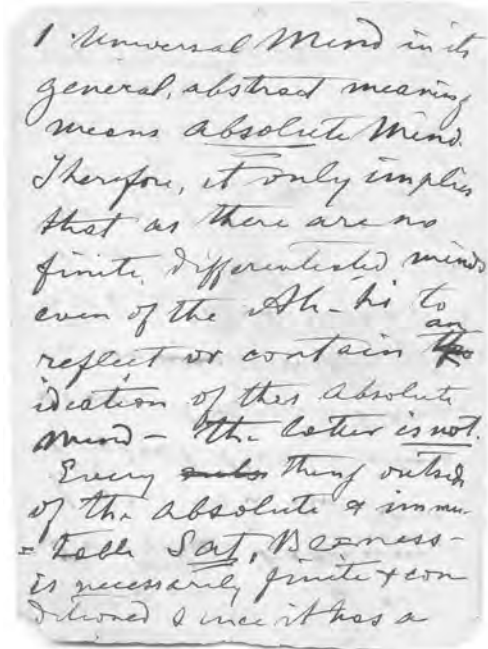 1. Universal Mind in its
general, abstract meaning
means absolute Mind.
Therefore, it only implies
that as there are no
finite, differentiated minds
even of the Ah-hi to
an
reflect or contain the
ideation of this absolute
Mind – the latter is not.
Every thing outside
of the absolute & immu-
= table Sat, Be=ness –
is necessarily finite & con
ditioned since it has a